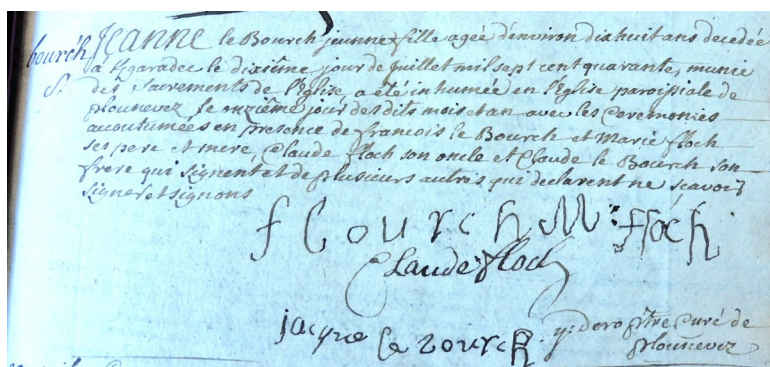 bourch JEANNE le Bourch jeunne fille agée d'environ dix huit ans decedée
S. à Kgaradec le dixiéme jour de juillet mil sept cent quarante, munie
des Sacrements de l'Eglise a été inhumée en l'Eglise paroissiale de
plounevez le onziéme jour des dits mois et an avec les Ceremonies
acoutumées en presence de francois le Bourch et Marie floch
ses pere et mere, Claude floch son oncle et Claude le Bourch son
frere qui signent et de plusieurs autres qui declarent ne sçavoir
signer et signons
f l bourch M: ffloch
Claude floch
jacque le bourch y: dero ptre Curé de
plounevez